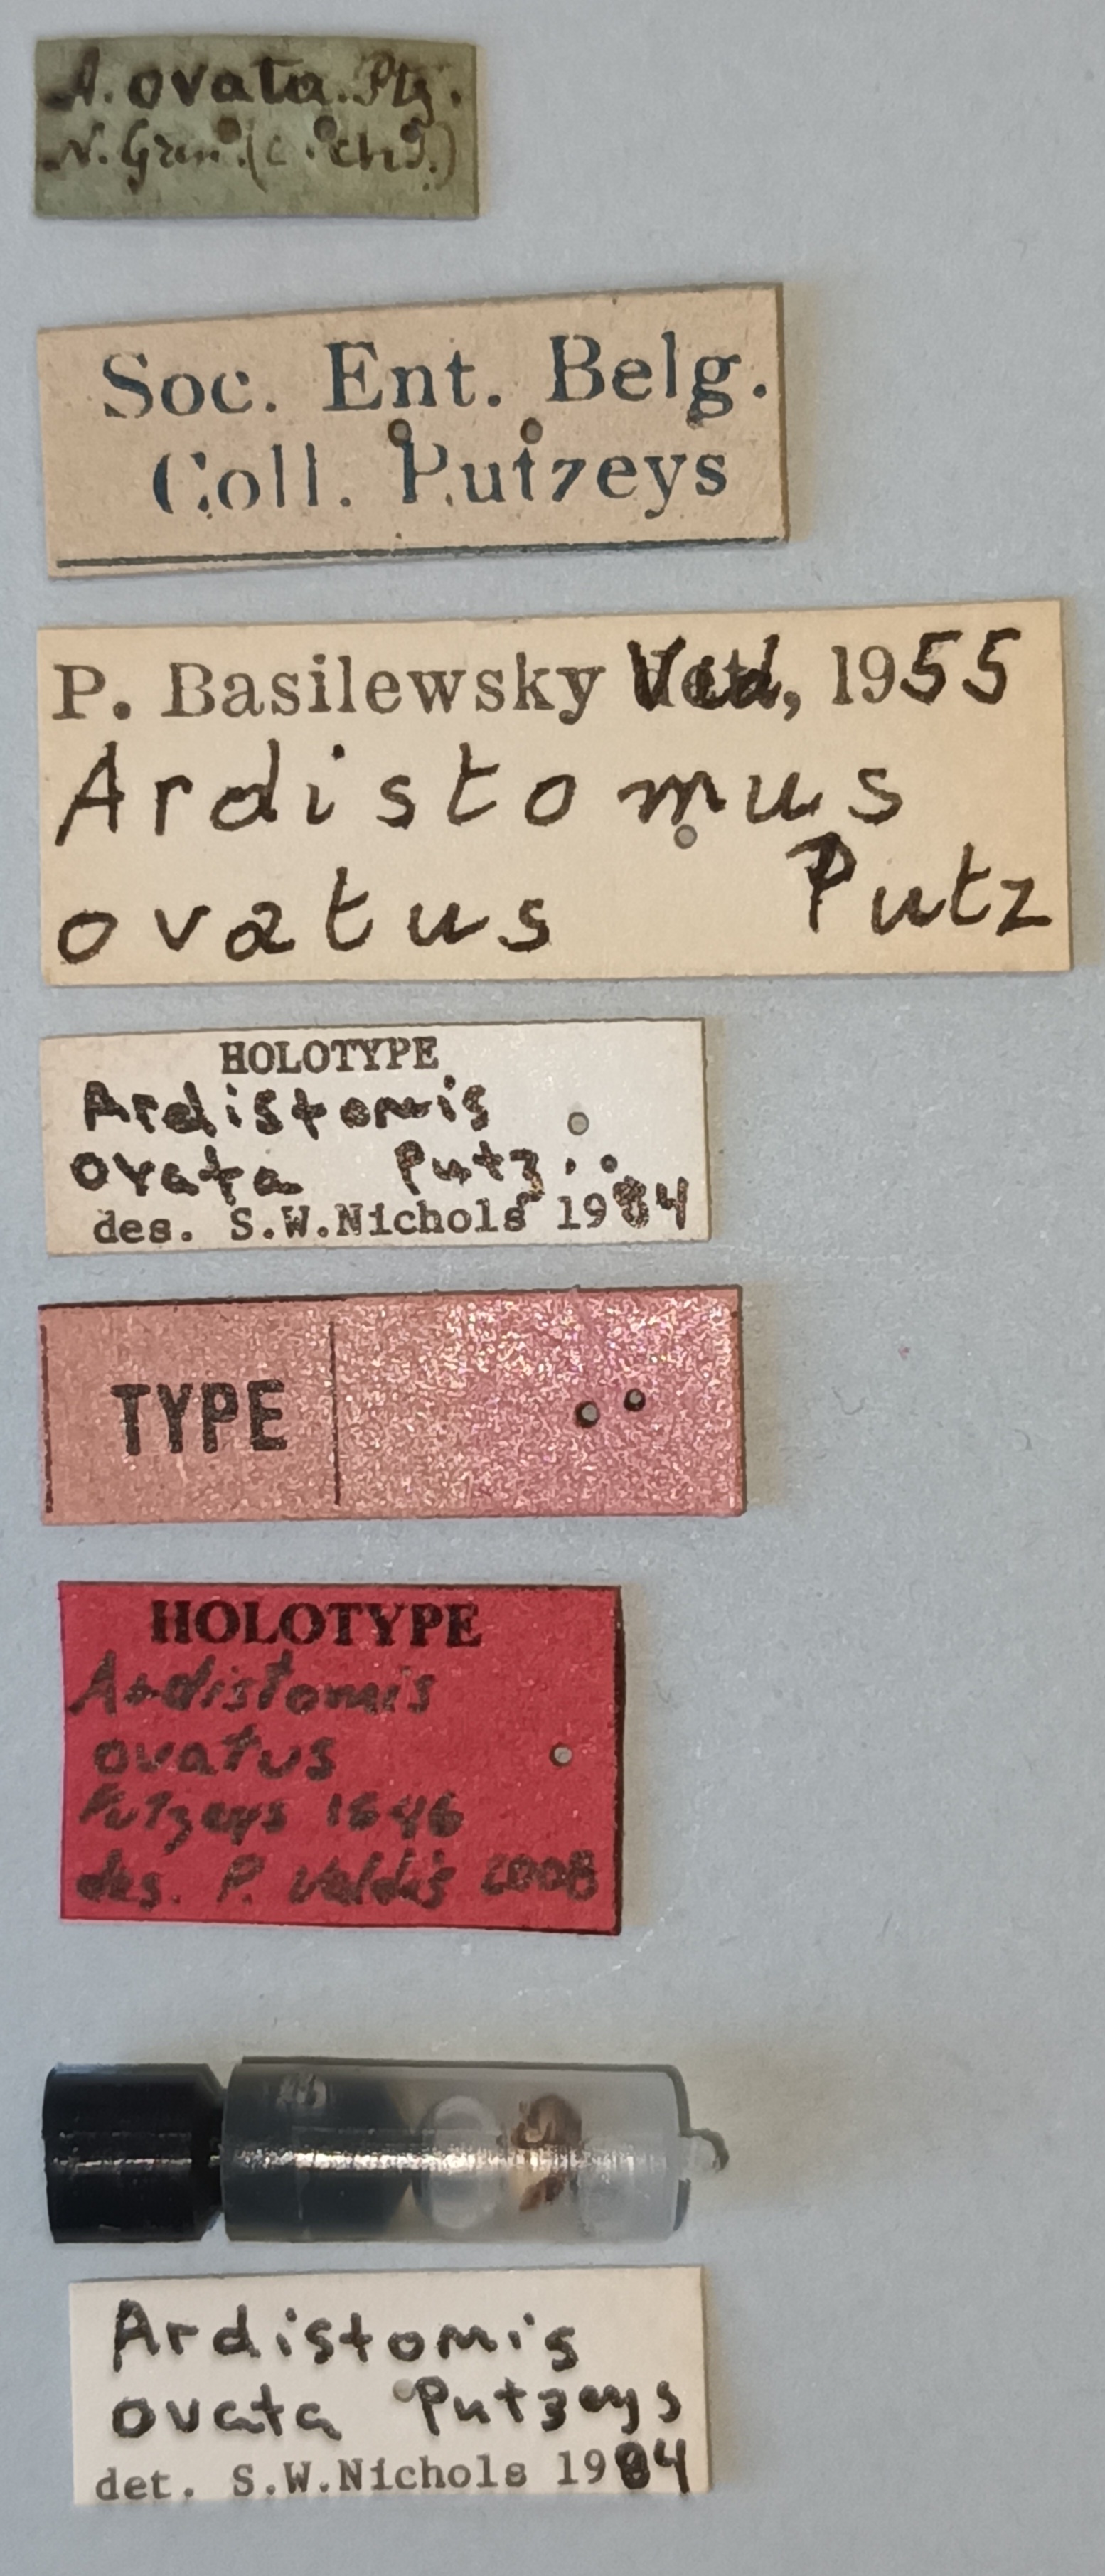 A. ovata. Ptz.
N. Gren.
Soc. Ent. Belg.
Coll. Putzeys
P. Basilewsky Vid, 1955
Ardistomus
ovatus Putz
HOLOTYPE
Ardistomis
ovata Putz.
des. S.W.Nichols 1984
TYPE
HOLOTYPE
Ardistomis
ovatus
Putzeys 1846
des. P. Valdés 2008
Ardistomis
ovata Putzeys
det. S.W.Nichols 1984